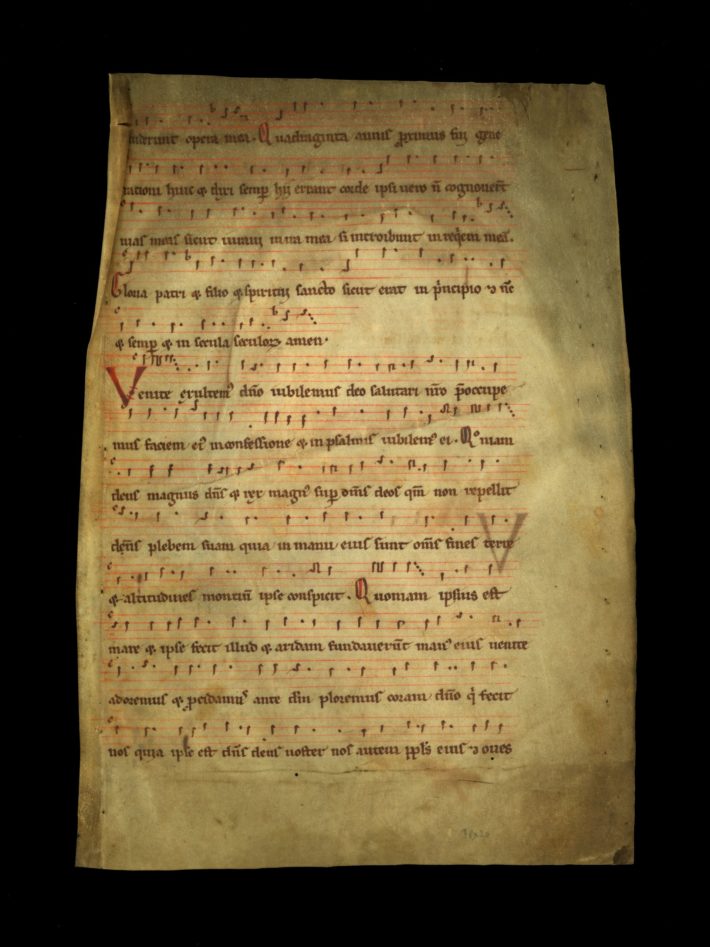 uiderunt opera mea. Quadraginta annis proximus fui gene
rationi huic & dixi semp hii errant corde ipsi uero n̄ cognouer̄t
uias meas sicut iuraui in ira mea si introibunt in reqiem meā.
Gloria patri & filio & spiritui sancto sicut erat in principio & nc̄
& semp & in secula seculorꝫ amen.
Venite exultemꝰ dn̄o iubilemus deo salutari nr̄o p̄occupe
mus faciem eiꝰ in confessione & in psalmis iubilemꝰ ei. Qm̄iam
deus magnus dn̄s & rex magnꝰ suꝑ om̄s deos qm̄ non repellit
dn̄s plebem suam quia in manu eius sunt om̄s fines terre
& altitudines montiū ipse conspicit. Quoniam ipsius est
mare & ipse fecit illud & aridam fundauer̄t manꝰ eius uenite
adoremus & procidamꝰ ante dm̄ ploremus coram dn̄o qi fecit
nos quia ipse est dn̄s deus noster nos autem ppl̄s eius & oues